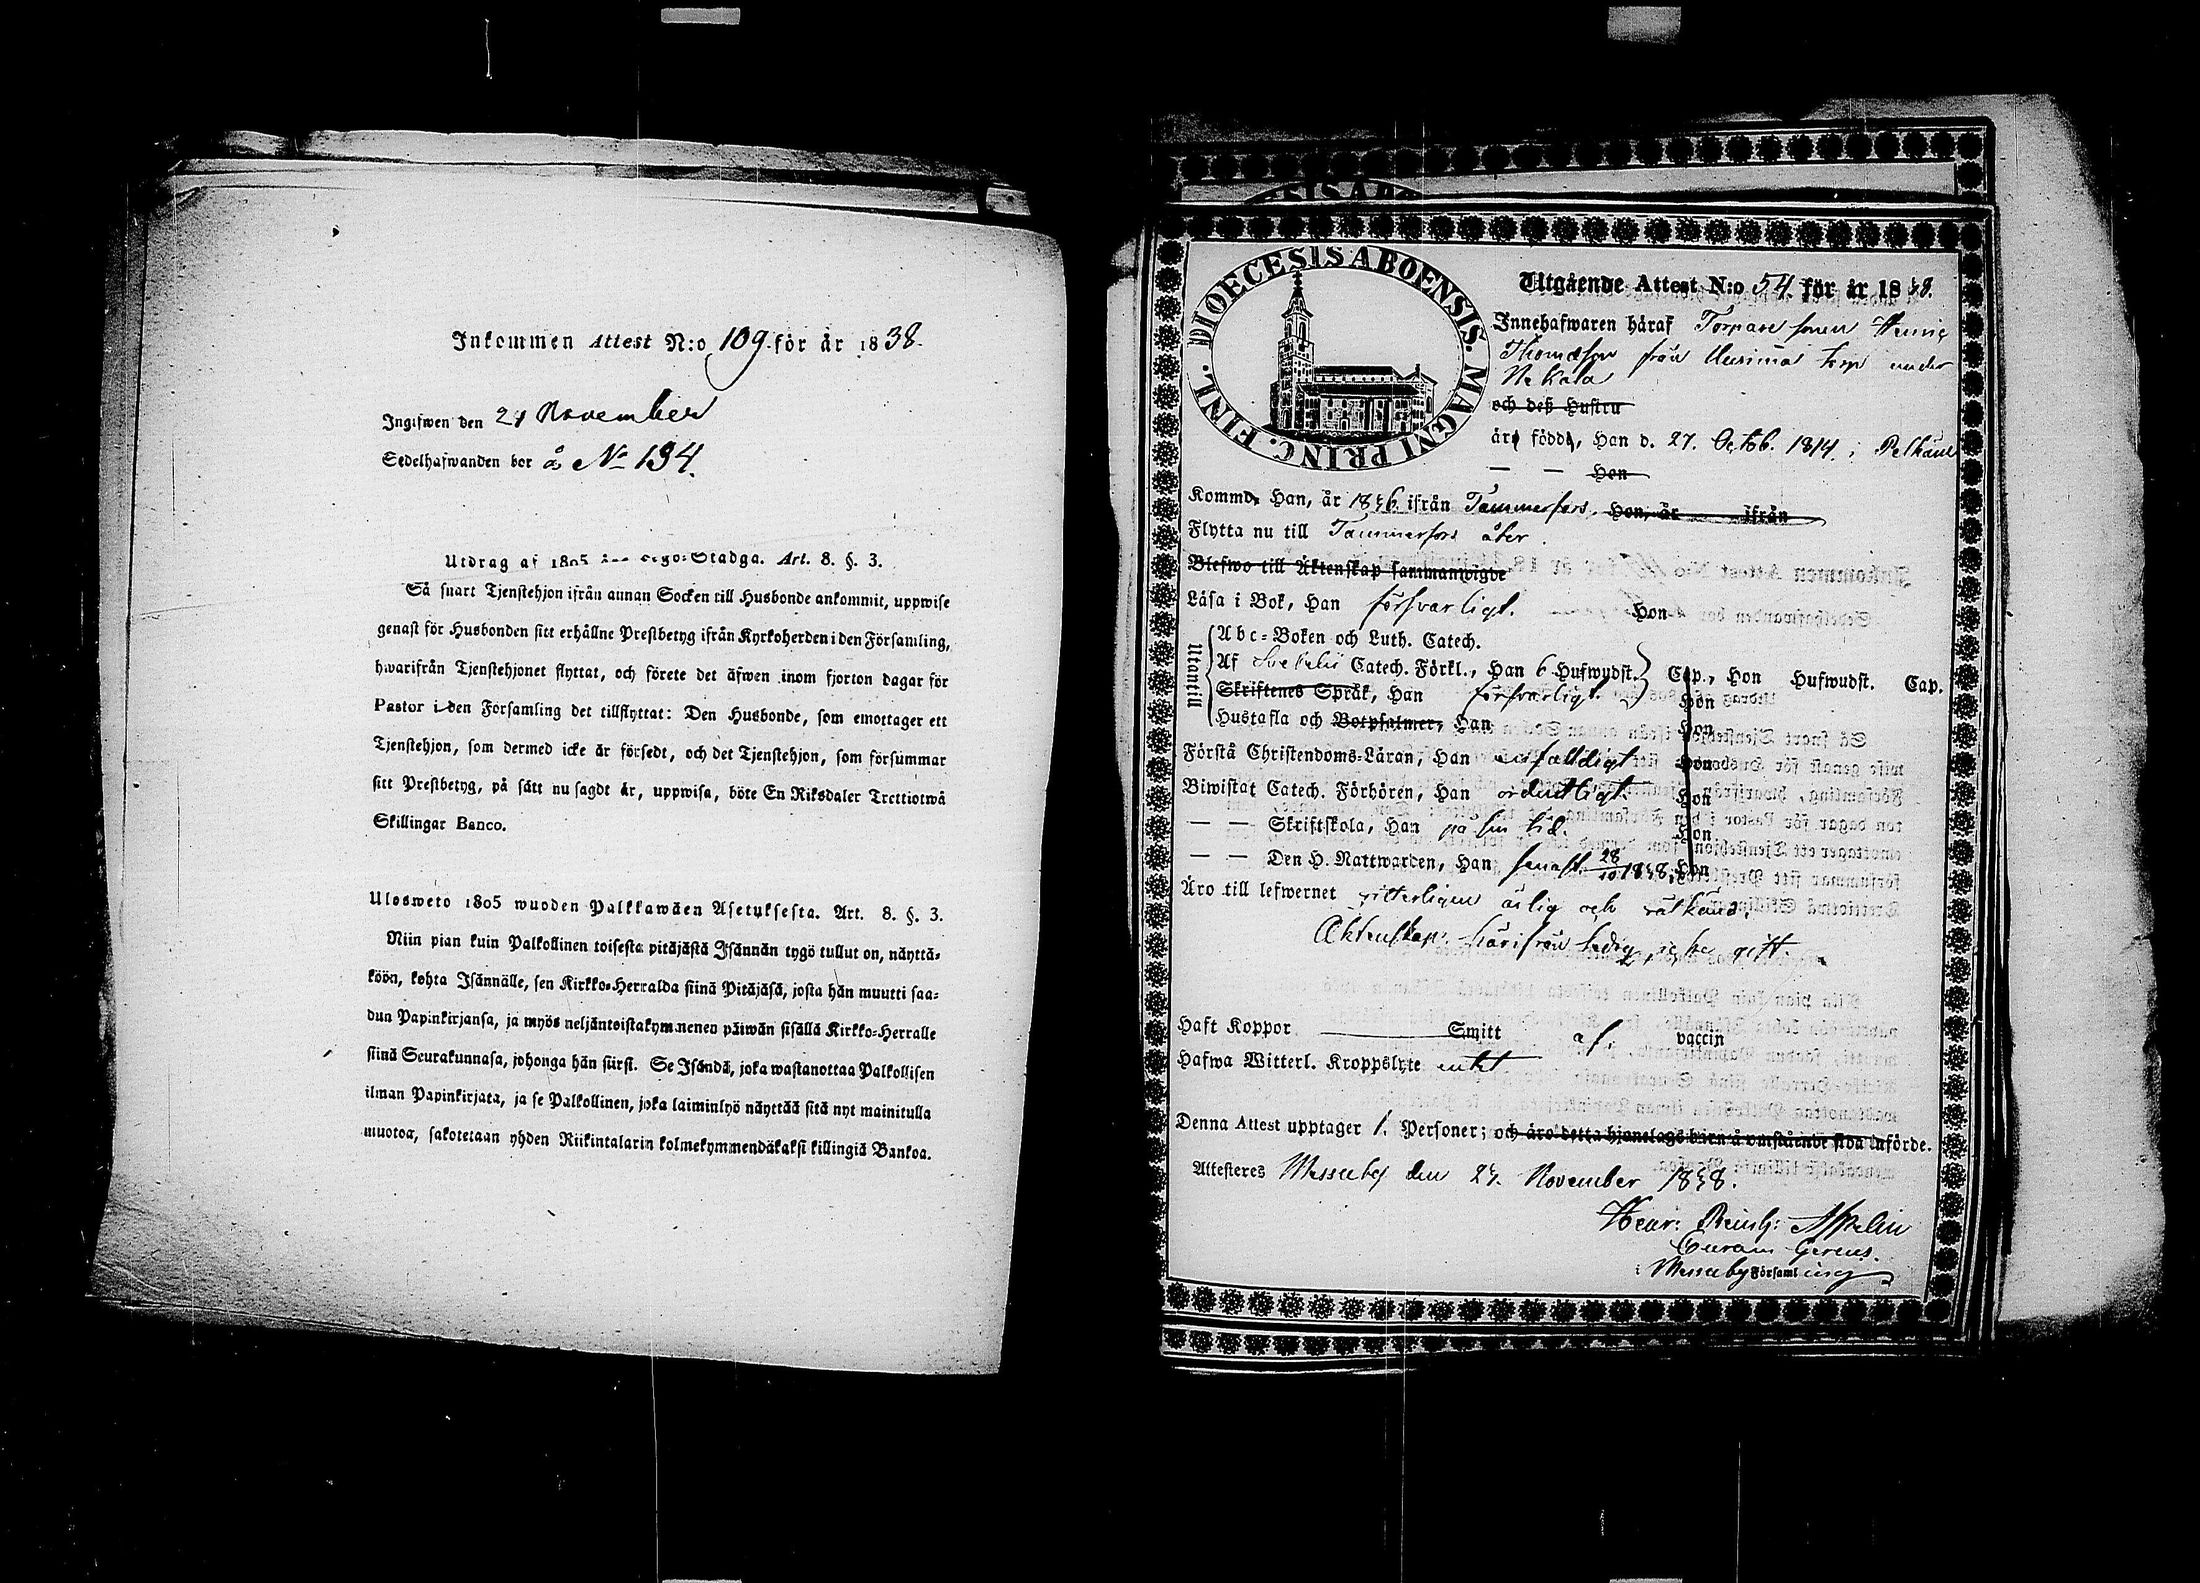 Inkommen Attest N:o 109 för år 1838.
Ingifwen den 21 November
Sedelhafwanden bor å No 134.
Utdrag af 1805 Lego-Stadga. Art. 8. §. 3.
Så snart Tjenstehjon ifrån annan Socken till Husbonde ankommit, uppwise
genast för Husbonden sitt erhållne Prestbetyg ifrån Kyrkoherden i den Församling,
hwarifrån Tjenstehjonet flyttat, och förete det äfwen inom fjorton dagar för
Pastor i den Församling det tillflyttat: Den Husbonde, som emottager ett
Tjenstehjon, som dermed icke är försedt, och det Tjenstehjon, som försummar
sitt Prestbetyg, på sätt nu sagdt är, uppwisa, böte En Riksdaler Trettiotwå
Skillingar Banco.
Ulosweto 1805 wuoden Palkkawäen Asetuksesta. Art. 8. §. 3.
Niin pian kuin Palkollinen toisesta pitäjästä Isännän tygö tullut on, näyttä-
köön, kohta Isännälle, sen Kirkko-Herralda siinä Pitäjäsä, josta hän muutti saa-
dun Papinkirjansa, ja myös neljäntoistakymmenen päiwän sisällä Kirkko-Herralle
siinä Seurakunnasa, johonga hän siirst. Se Isändä, joka wastanottaa Palkollisen
ilman Papinkirjata, ja se Palkollinen, joka laiminlyö näyttää sitä nyt mainitulla
muotoa, sakotetaan yhden Riikintalarin kolmekymmendäkaksi killingiä Bankoa.
DIOECESIS ABOENSIS. MAGNI PRINC. FINL.
Utgående Attest N:o 54 för år 1838.
Innehafwaren häraf Torpare sonen
Thomasson från torp under
Nekala
och deß Hustru
äro födde, Han d. 27. Octob. 1814. i Pelkäne
— — Hon
Komme Han, år 1836 ifrån Tammerfors, Hon, år ifrån
Flytta nu till Tammerfors åter.
Blefwo till Äktenskap sammanwigde
Läsa i Bok, Han försvarligt. Hon
Utantill
Abc-Boken och Luth. Catech.
Af Svebelii Catech. Förkl., Han 6 Hufwudst. Cap., Hon Hufwudst. Cap.
Skriftenes Språk, Han försvarligt. Hon
Hustafla och Botpsalmer, Han Hon
Förstå Christendoms-Läran, Han enfaldigt Hon
Biwistat Catech. Förhören, Han ordentligt. Hon
— — Skriftskola, Han på sin tid. Hon
— — Den H. Nattwarden, Han senast 28/10 1838. Hon
Äro till lefwernet witterligen ärlig och
Äktenskap: härifrån ledig, icke gift.
Haft Koppor Smitt af vaccin
Hafwa Witterl. Kroppslyte intet
Denna Attest upptager 1. Personer; och äro detta hjonelags barn å omstående sida införde.
Attesteras Messuby den 21. November 1838.
Henr: Reinh: Appelin
Curam Gerens.
i Messuby Församling